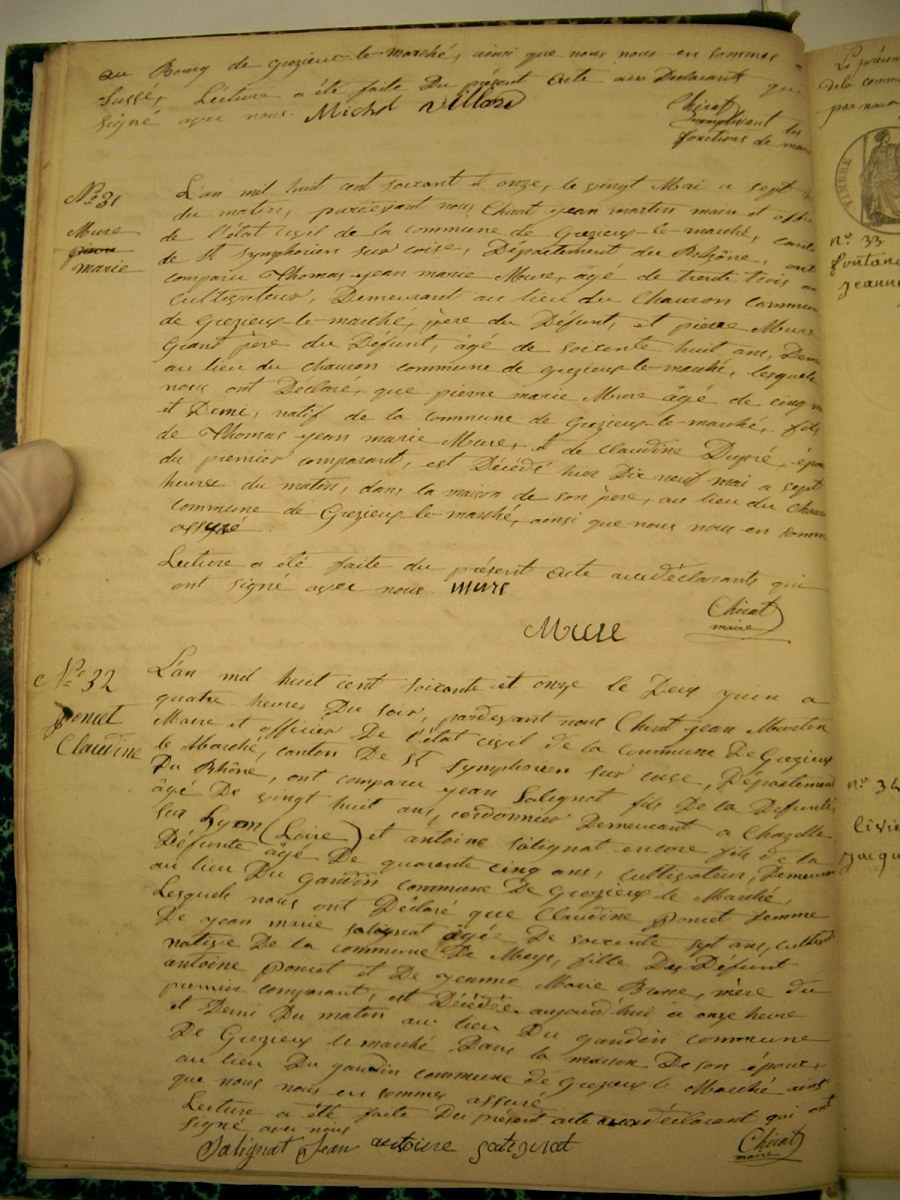 au Bourg de grezieux-le-marché, ainsi que nous nous en sommes a
-suré, Lecture a été faite Du présent acte aux Declarants qui
signé avec nous. Michel Villard
Chirat
remplissant les
fonctions de maire
N° 31
Mure
pierre
marie
L'an mil huit cent soixant et onze, le vingt Mai a sept
du matin, pardevant nous Chirat jean martin maire et offi
de l'état civil de la commune de Grezieux-le-marché, canto
de St Symphorien sur coise, Département du Rhône, ont
comparu Thomas jean marie Mure, âgé de trente trois an
cultivateur, Demeurant au lieu du Chauron commune
de Grezieux-le-marché, père du Défunt, et pierre Mure
Grand père du Défunt, âgé de soixente huit ans, Deme
au lieu du chauron commune de grezieux-le-marché, lesquels
nous ont Declaré, que pierre marie Mure âgé de cinq m
et Demi, natif de la commune de Grezieux-le-marché, fils
de Thomas jean marie Mure, et de claudine Dupré, épou
du premier comparant, est Décédé hier Dix neuf mai a sept
heures du matin, dans la maison de son père, au lieu du Chauron
commune de Grezieux-le-marché, ainsi que nous nous en somm
assuré
Lecture a été faite du présent acte aux déclarants qui
ont signé avec nous. mure
Chirat
maire
Mure
N° 32
poncet
Claudine
L'an mil huit cent soixante et onze le Deux juin a
quatre heures Du soir, pardevant nous Chirat jean Martin
Maire et officier De l'état civil de la commune De Grezieux
le Marché, canton De St Symphorien sur coise, Département
Du Rhône, ont comparu jean Salignat fils De la Défunte
âgé De vingt huit ans, cordonnier Demeurant a Chazelle
sur Lyon (Loire) et antoine Salignat encore fils de la
Défunte âgé De quarente cinq ans, cultivateur, Demeurant
au lieu Du gaudin commune De Grezieux le Marché,
Lesquels nous ont Déclaré que Claudine poncet femme
De jean marie salignat âgée De soixente sept ans, cultivat
native De la commune De Meys, fille Des Défunt
antoine poncet et De jeanne Marie Brosse, mère du
premier comparant, est Décédée aujourd'hui a onze heure
et Demi Du matin au lieu Du gaudin commune
De Grezieux le marché Dans la maison De son époux,
au lieu Du gaudin commune de Grezieux le Marché ainsi
que nous nous en sommes assuré
Lecture a été faite Du présent acte aux déclarant qui ont
signé avec nous
Salignat Jean antoine salignat
Chirat
maire
Le présen
de la comm
par nous
TIMBRE
n° 33
fontane
jeanne
n° 34